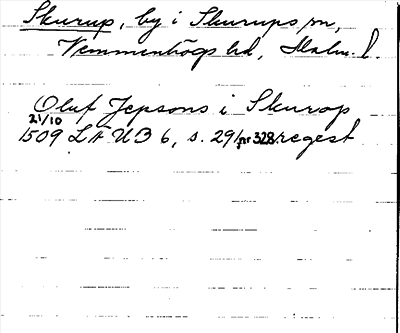 Skurup, by i Skurups sn,
Vemmenhögs hd, Malm. l.
Oluf Jepsons i Skurop
21/10
1509 LÄUB 6, s. 291 nr 328. regest